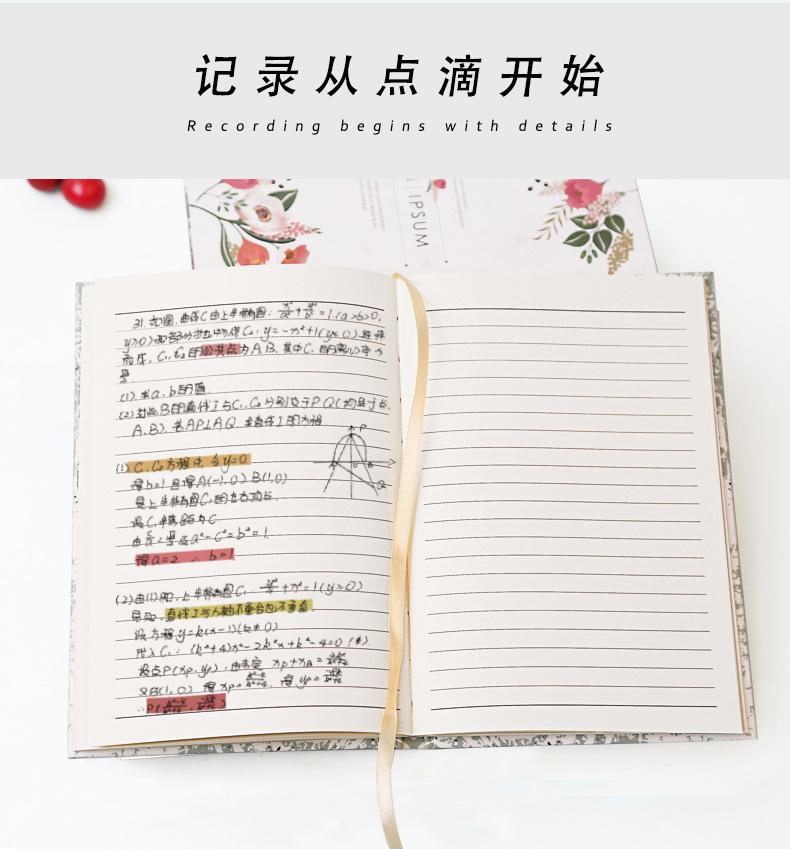 记录从点滴开始
Recording begins with details
IPSUM
31. 如图,曲线C由上半椭圆: +=1(a>b>0,
y≥0)和部分抛物线C₂: y=-x²+1(y≤0)连接
而成, C₁, C₂的公共点为A,B, 其中C₁的离心率为
(1). 求a,b的值
(2) 过点B的直线l与C₁, C₂分别交于P Q(均异于点
A,B), 若AP⊥AQ, 求直线l的方程
P
Q
(1) C₁, C₂方程中, 令y=0
得b=1 且得A(-1,0) B(1,0)
是上半椭圆C₁的左右顶点
设C₁半焦距为C
由 = 及a²-c²=b²=1
得a=2 ∴b=1
(2)由(1)知, 上半椭圆C₁: +x²=1(y≥0)
易知, 直线l与x轴不重合也不垂直
设方程y=k(x-1)(k≠0)
代入C₁: (k²+4)x²-2k²x+k²-4=0 (*)
设点P(xp, yp), 由韦定 xp+xB=
又B(1,0) 得xp= 得yp=
∴P( , )